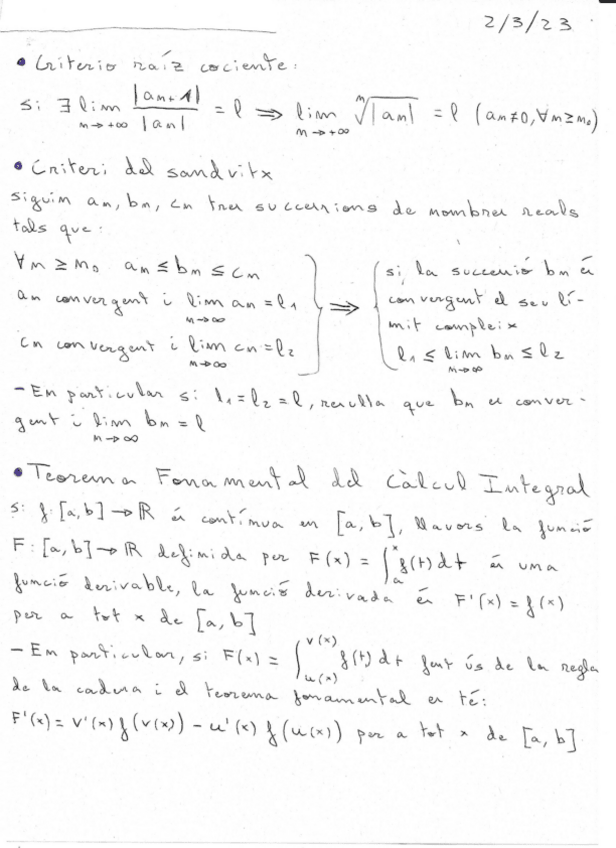 2/3/23
• Criterio raíz cociente:
si ∃ lim_{n→+∞} |an+1|/|an| = l ⟹ lim_{n→+∞} ⁿ√|an| = l (an≠0, ∀n≥n₀)
• Criteri del sandvitx
siguin an, bn, cn tres successions de nombres reals
tals que:
∀n ≥ n₀ an ≤ bn ≤ cn
an convergent i lim_{n→∞} an = l₁
cn convergent i lim_{n→∞} cn = l₂
⟹
si la successió bn és
convergent el seu lí-
mit compleix
l₁ ≤ lim_{n→∞} bn ≤ l₂
- En particular si l₁ = l₂ = l, resulta que bn es conver-
gent i lim_{n→∞} bn = l
• Teorema Fonamental del Càlcul Integral
si f: [a,b] → ℝ és contínua en [a,b], llavors la funció
F: [a,b] → ℝ definida per F(x) = ∫ₐˣ f(t)dt és una
funció derivable, la funció derivada és F'(x) = f(x)
per a tot x de [a,b]
- En particular, si F(x) = ∫_{u(x)}^{v(x)} f(t)dt fent ús de la regla
de la cadena i el teorema fonamental es té:
F'(x) = v'(x) f(v(x)) - u'(x) f(u(x)) per a tot x de [a,b]